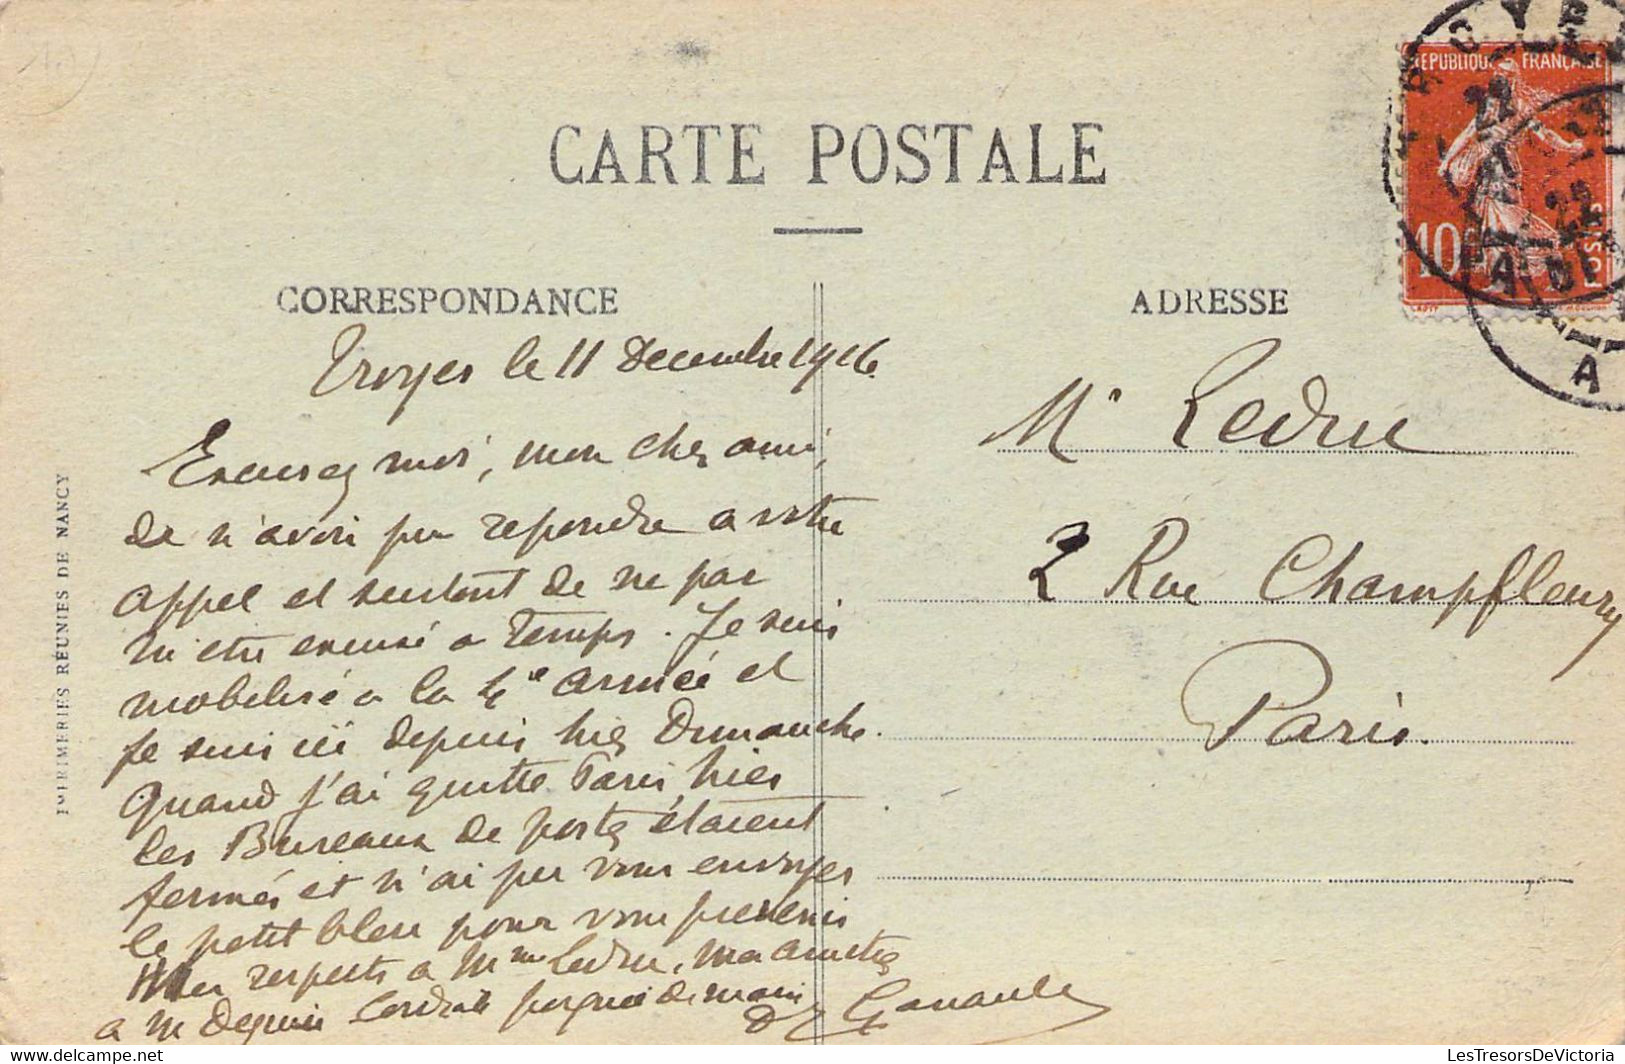 CARTE POSTALE
CORRESPONDANCE
ADRESSE
REPUBLIQUE FRANÇAISE
10
POSTES
Troyes le 11 Decembre 1916
Excusez moi, mon cher ami,
de n'avoir pu repondre a votre
appel et surtout de ne pas
m'etre excusé a temps. Je suis
mobilisé a la 4e armée et
je suis ici depuis hier Dimanche.
Quand j'ai quitté Paris, hier
les Bureaux de poste étaient
fermés et n'ai pu vous envoyer
le petit bleu pour vous prevenir
Mes respects a Mme Ledru, mes amitiés
a M Deguin Cordiale poignée de main
Dr
Mr Ledru
2 Rue Champfleury
Paris.
IMPRIMERIES RÉUNIES DE NANCY
LesTresorsDeVictoria